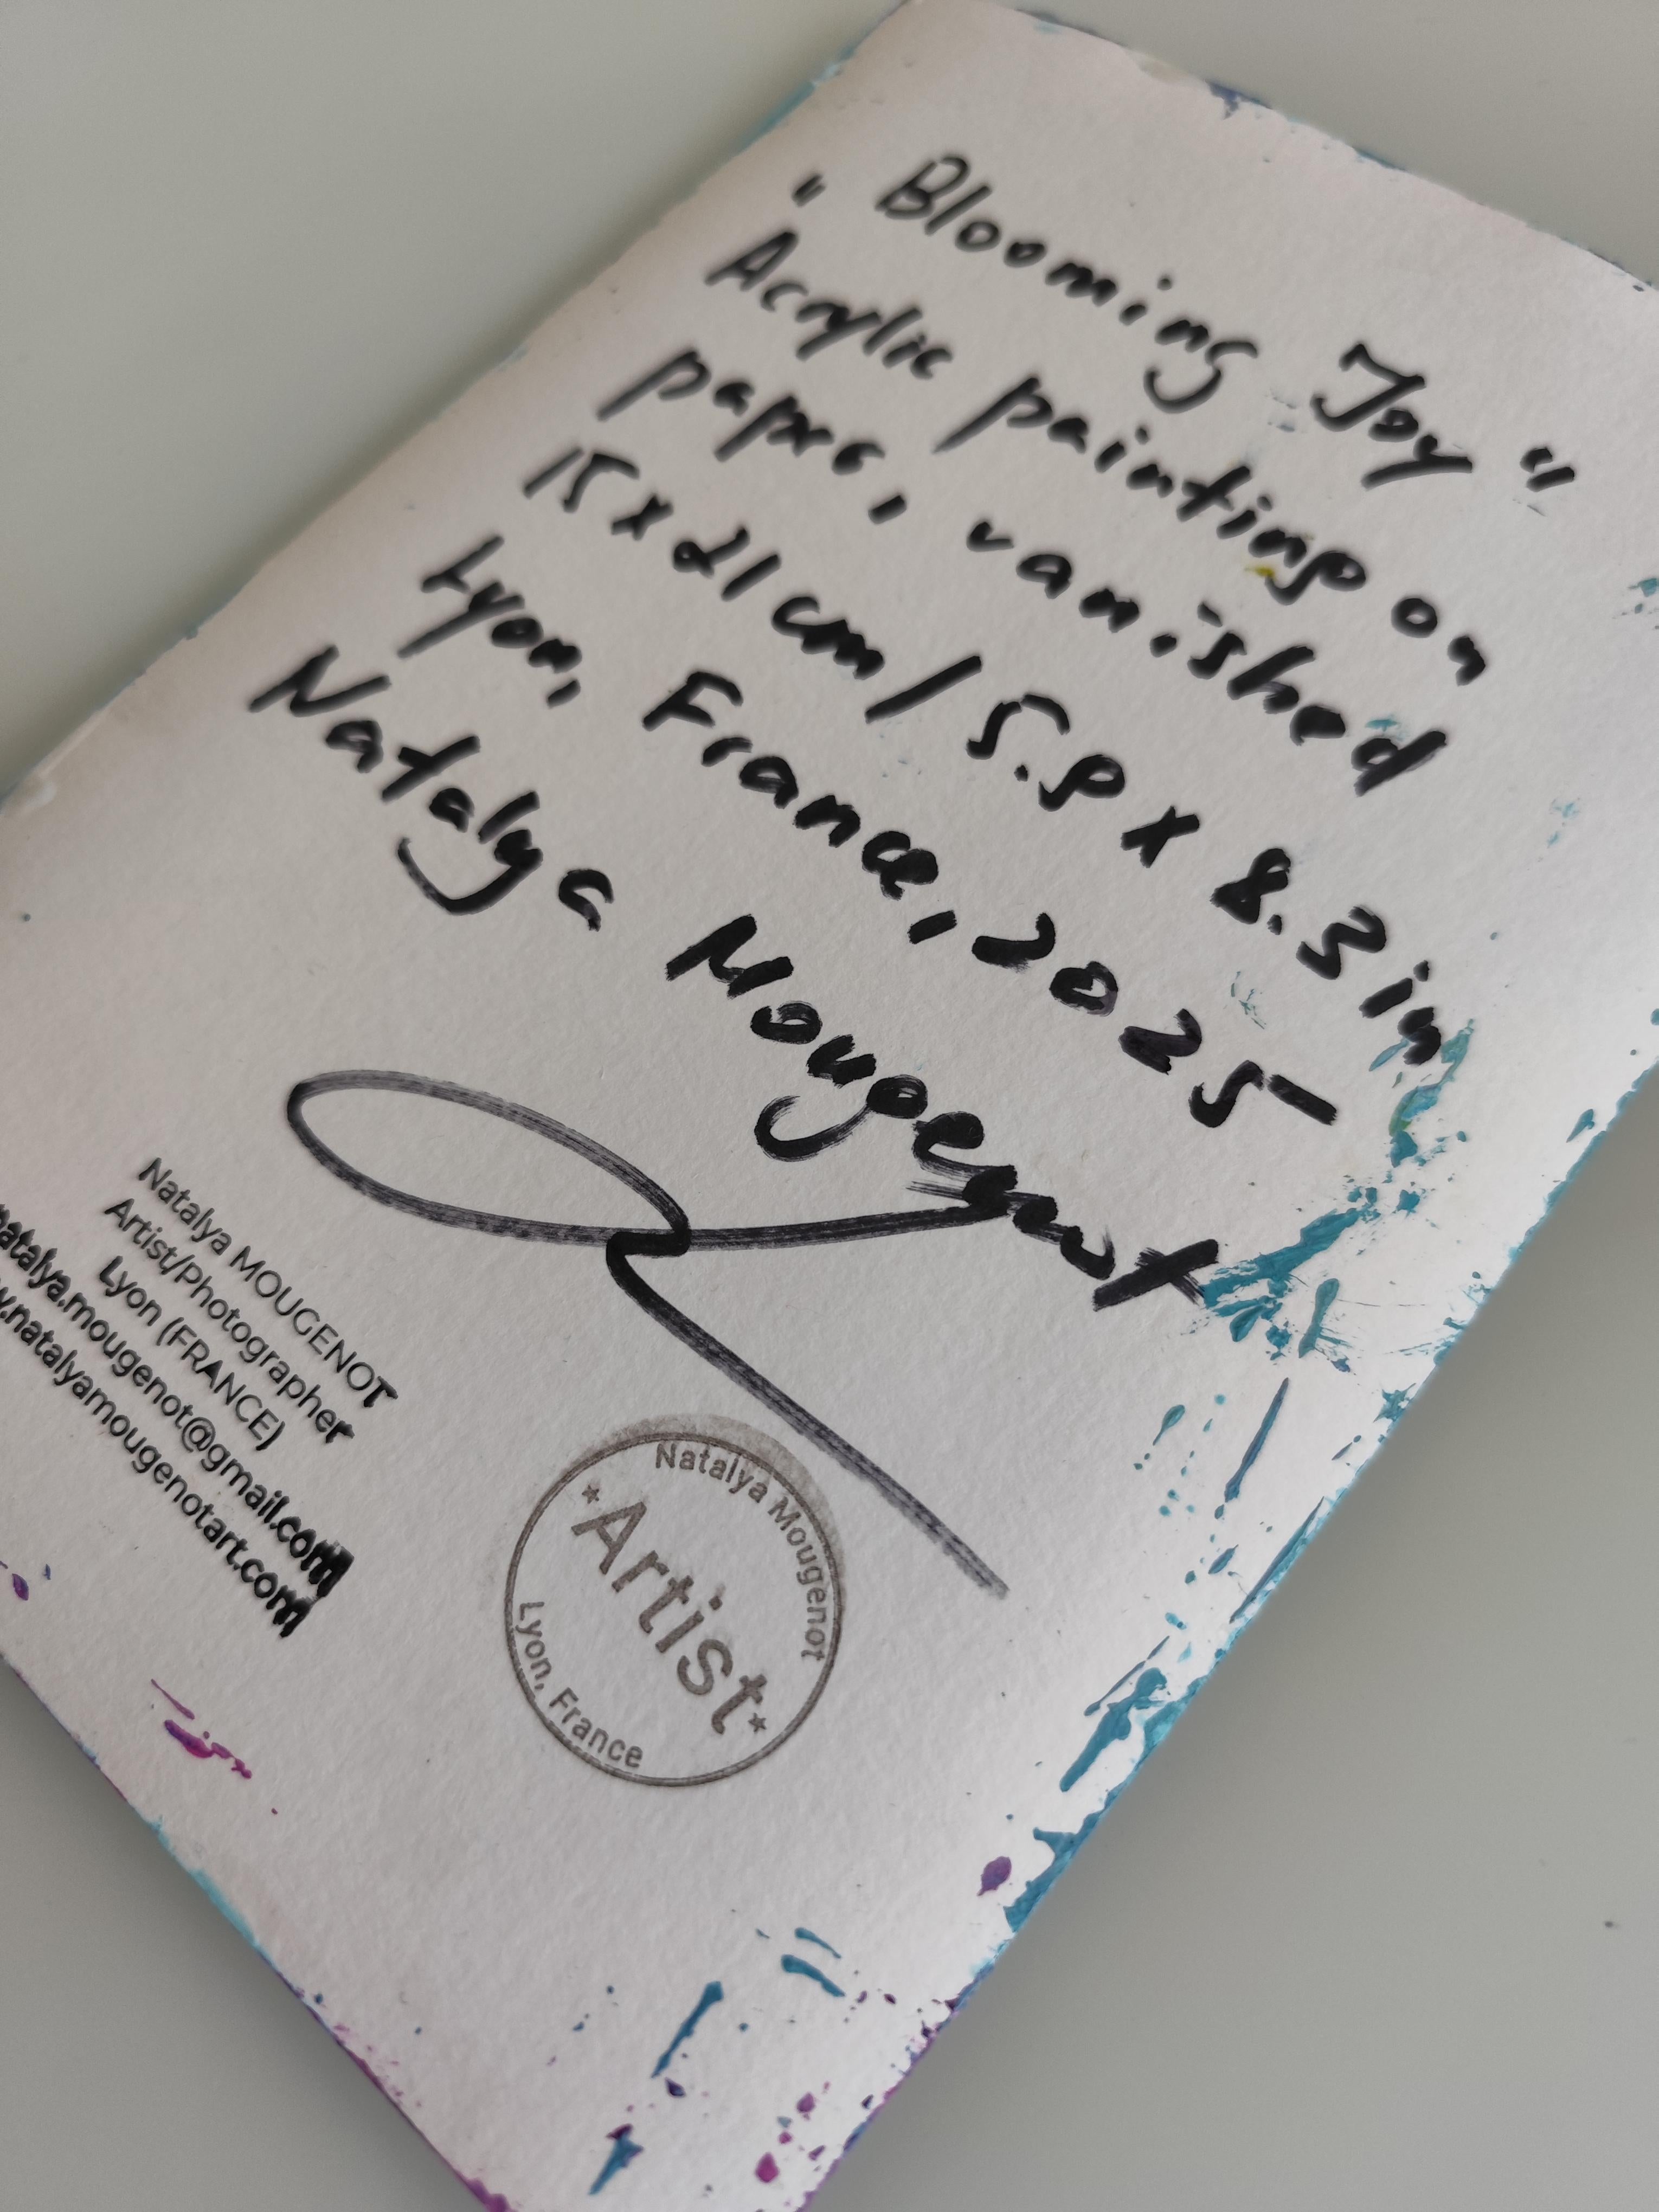 " Blooming Joy "
Acrylic painting on
paper, vanished
15 x 21 cm / 5.9 x 8.3 in
Lyon, France, 2025
Natalya Mougenot
Natalya MOUGENOT
Artist/Photographer
Lyon (FRANCE)
natalya.mougenot@gmail.com
.natalyamougenotart.com
Natalya Mougenot
*Artist*
Lyon, France